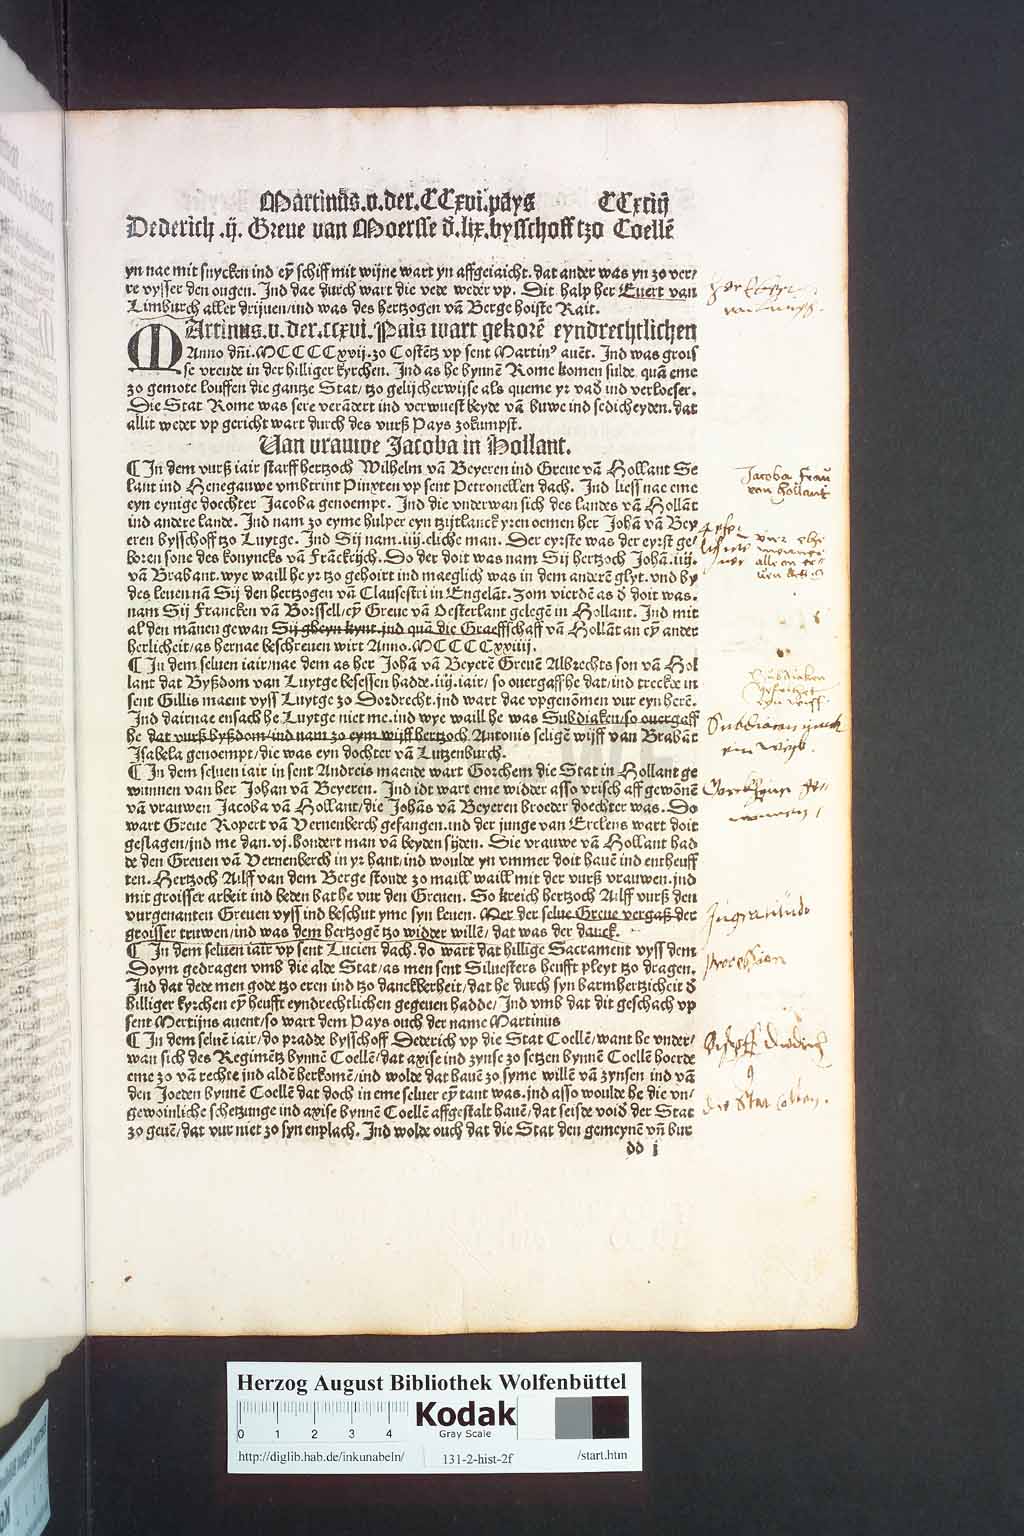 Martinus.v.der.CCxvi.pays CCxciiij
Dederich .ij. Greue van Moersse d̕.lix.bysschoff tzo Coellē
yn nae mit snycken ind eyn̄ schiff mit wijne wart yn affgeiaicht. dat ander was yn zo ver/
re vysser den ougen. Ind dae durch wart die vede weder vp. Dit halp her Euert van
Limburch aller drijuen/ind was des hertzogen vā Berge hoiste Rait.
MArtinus.v.der.ccxvi.Pais wart gekorē eyndrechtlichen
Anno dn̄i.MCCCCxvij.zo Costētz vp sent Martinꝰ auēt. Ind was grois
se vreude in der hilliger kyrchen. Ind as he bynnē Rome komen sulde. quā eme
zo gemote louffen die gantze Stat/ tzo gelijcherwijse als queme yr vad̕ ind verloeser.
Die Stat Rome was sere verādert ind verwuest beyde vā buwe ind sedicheyden. dat
allit weder vp gericht wart durch des vurß Pays zokumpst.
Van vrauwe Jacoba in Hollant.
¶ In dem vurß iair starff hertzoch Wilhelm vā Beyeren ind Greue vā Hollant Se
lant ind Henegauwe vmbtrint Pinxten vp sent Petronellen dach. Ind liess nae eme
eyn eynige doechter Jacoba genoempt. Ind die vnderwan sich des landes vā Hollāt
ind andere lande. Ind nam zo eyme hulper eyn tzijtlanck yren oemen her Johā vā Bey
eren bysschoff tzo Luytge. Ind Sij nam.iiij.eliche man. Der eyrste was der eyrst ge/
boren sone des konyncks vā Franckrijch. Do der doit was nam Sij hertzoch Johā.iiij.
vā Brabant. wye waill he yr tzo gehoirt ind maeglich was in dem anderē glyt. vnd by
des leuen nā Sij den hertzogen vā Claufestri in Engelāt. Zom vierdē as d̕ doit was.
nam Sij Francken vā Borssell/eyn̄ Greue vā Oesterlant gelegē in Hollant. Ind mit
al den mānen gewan Sij gheyn kynt.ind quā die Graeffschaff vā Hollāt an eyn̄ ander
herlicheit/as hernae beschreuen wirt Anno.MCCCCxxiiij.
¶ In dem seluen iair/nae dem as her Johā vā Beyerē Greuē Albrechts son vā Hol
lant dat Byßdom van Luytge besessen hadde.iiij.iair/ so ouergaff he dat/ind treckde in
sent Gillis maent vyss Luytge zo Dordrecht.ind wart dae vpgenōmen vur eyn herē.
Ind dairnae ensach he Luytge niet me.ind wye waill he was Subdiaken/so ouergaff
he dat vurß byßdom/ind nam zo eym wijff hertzoch Antonis seligē wijff van Brabāt
Isabela genoempt/die was eyn dochter vā Lutzenburch.
¶ In dem seluen iair in sent Andreis maende wart Gorchem die Stat in Hollant ge
wunnen van her Johan vā Beyeren. Ind idt wart eme widder also vrisch aff gewōnē
vā vrauwen Jacoba vā Hollant/die Johās vā Beyeren broeder doechter was. Do
wart Greue Ropert vā Vernenberch gefangen.ind der junge van Erclens wart doit
geslagen/ind me dan.vj.hondert man vā beyden sijden. Die vrauwe vā Hollant had
de den Greuen vā Vernenberch in yr hant/ind woulde yn vmmer doit hauē ind entheuff
ten. Hertzoch Ailff van dem Berge stonde zo maill waill mit der vurß vrauwen.ind
mit groisser arbeit ind beden bat he vur den Greuen. So kreich hertzoch Ailff vurß den
vurgenanten Greuen vyss ind beschut yme syn leuen. Mer der selue Greue vergaß der
groisser truwen/ind was dem hertzogē tzo widder willē/ dat was der danck.
¶ In dem seluen iair vp sent Lucien dach. do wart dat hillige Sacrament vyss dem
Doym gedragen vmb die alde Stat/as men sent Siluesters heufft pleyt tzo dragen.
Ind dat dede men gode tzo eren ind tzo danckberheit/dat he durch syn barmhertzicheit d̕
hilliger kyrchen eyn̄ heufft eyndrechtlichen gegeuen hadde/ Ind vmb dat dit geschach vp
sent Mertijns auent/so wart dem Pays ouch der name Martinus
¶ In dem seluē iair/do pradde bysschoff Dederich vp die Stat Coellē/want he vnder/
wan sich des Regimētz bynnē Coellē/dat axise ind zynse zo setzen bynnē Coellē hoerde
eme zo vā rechte ind aldē herkomē/ind wolde dat hauē zo syme willē vā zynsen ind vā
den Joeden bynnē Coellē dat doch in eme seluer eyn̄ tant was.ind asso woulde he die vn/
gewoinliche schetzunge ind axise bynnē Coellē affgestalt hauē/dat seisde void̕ der Stat
zo geuē/dat vur niet zo syn enplach. Ind wolde ouch dat die Stat den gemeynē vn̄ bur
dd j
Jacoba Frau
von Hollant
Subdiacon
ein Weyb.
Ingratitudo
processien
Bischoff Diederich
die Stat Collen.
Herzog August Bibliothek Wolfenbüttel
0 1 2 3 4
Kodak
Gray Scale
http://diglib.hab.de/inkunabeln/ 131-2-hist-2f /start.htm